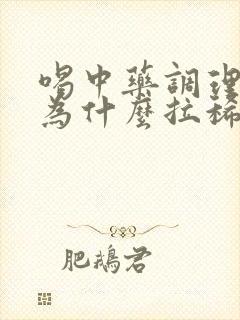 喝中藥調理
為什麼拉稀
肥鵝君